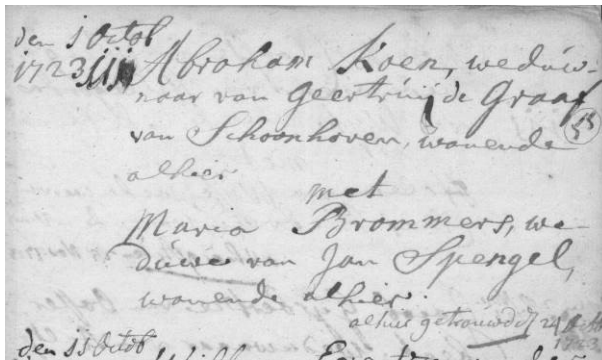 den 1 Octob
1723 Abraham Koen, weduw-
naar van Geertruij de Graaf
van Schoonhoven, wonende
alhier
met
Maria Brommers, we-
duwe van Jan Spengel,
wonende alhier.
alhier getrouwd d 24 Octob
1723
den 15 Octob